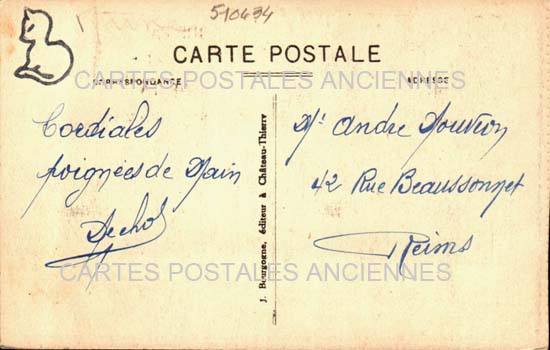 510434
CARTE POSTALE
CORRESPONDANCE
ADRESSE
CARTES POSTALES ANCIENNES
Cordiales
poignées de Main
J. Bourgogne, éditeur à Château-Thierry
Mr André
42 Rue Beaussonnet
Reims
CARTES POSTALES ANCIENNES